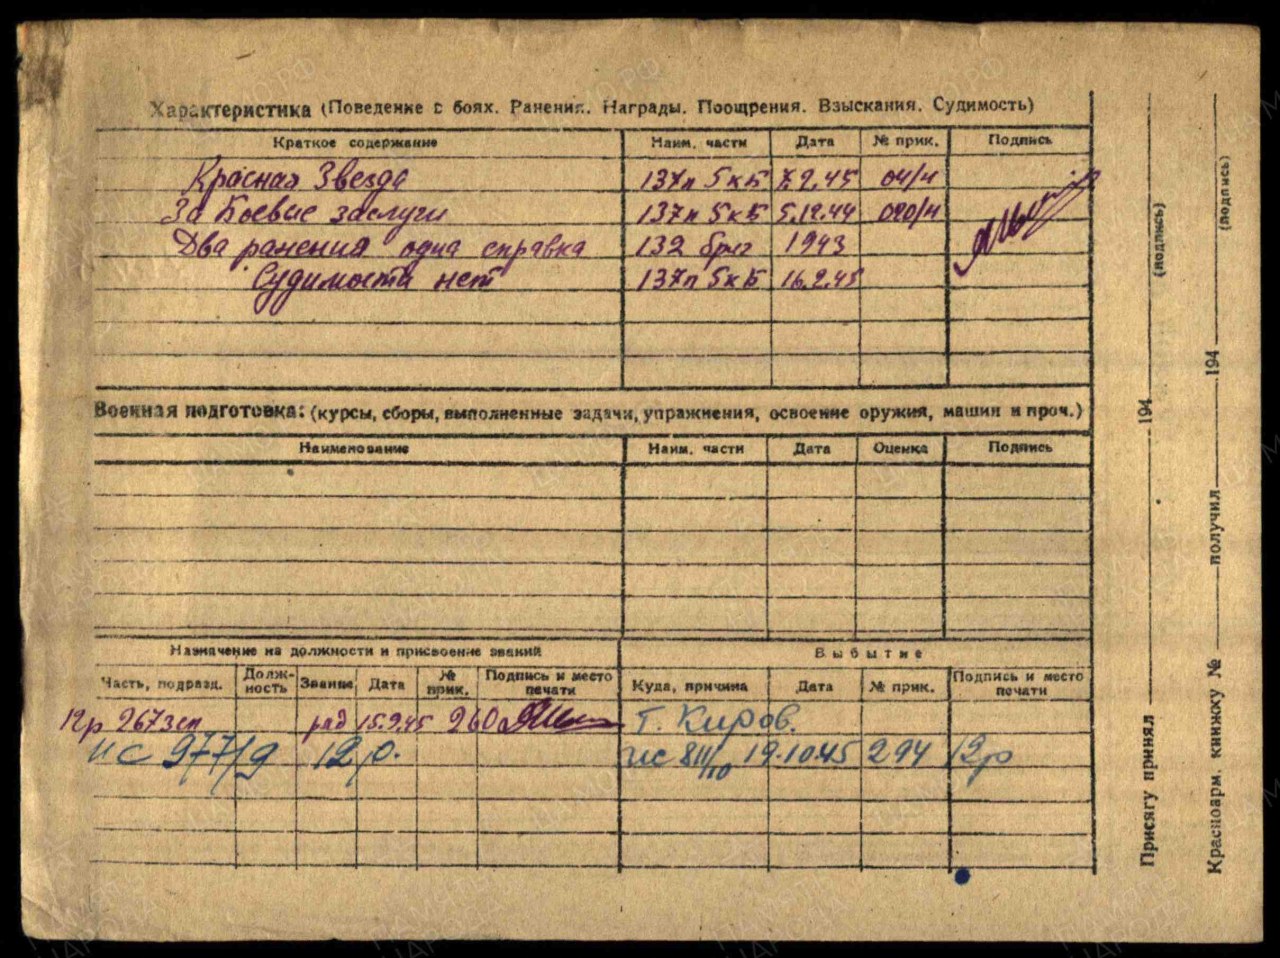 Характеристика (Поведение в боях. Ранения. Награды. Поощрения. Взыскания. Судимость)
Краткое содержание Наим. части Дата № прик. Подпись
Красная Звезда 137п 5кБ 7.2.45 04/н
За Боевые заслуги 137п 5кБ 5.12.44 020/н
Два ранения одна справка 132 бриг 1943
Судимости нет 137п 5кБ 16.2.45
Военная подготовка: (курсы, сборы, выполненные задачи, упражнения, освоение оружия, машин и проч.)
Наименование Наим. части Дата Оценка Подпись
Назначение на должности и присвоение званий Выбытие
Часть, подразд. Долж-ность Звание Дата № прик. Подпись и место печати Куда, причина Дата № прик. Подпись и место печати
12р 267зсп ряд 15.9.45 260 г. Киров.
ис 977/9 12р. ис 811/10 19.10.45 294 12р
Присягу принял 194 (подпись)
Красноарм. книжку № получил 194 (подпись)
ПАМЯТЬ НАРОДА
ЦАМО.РФ